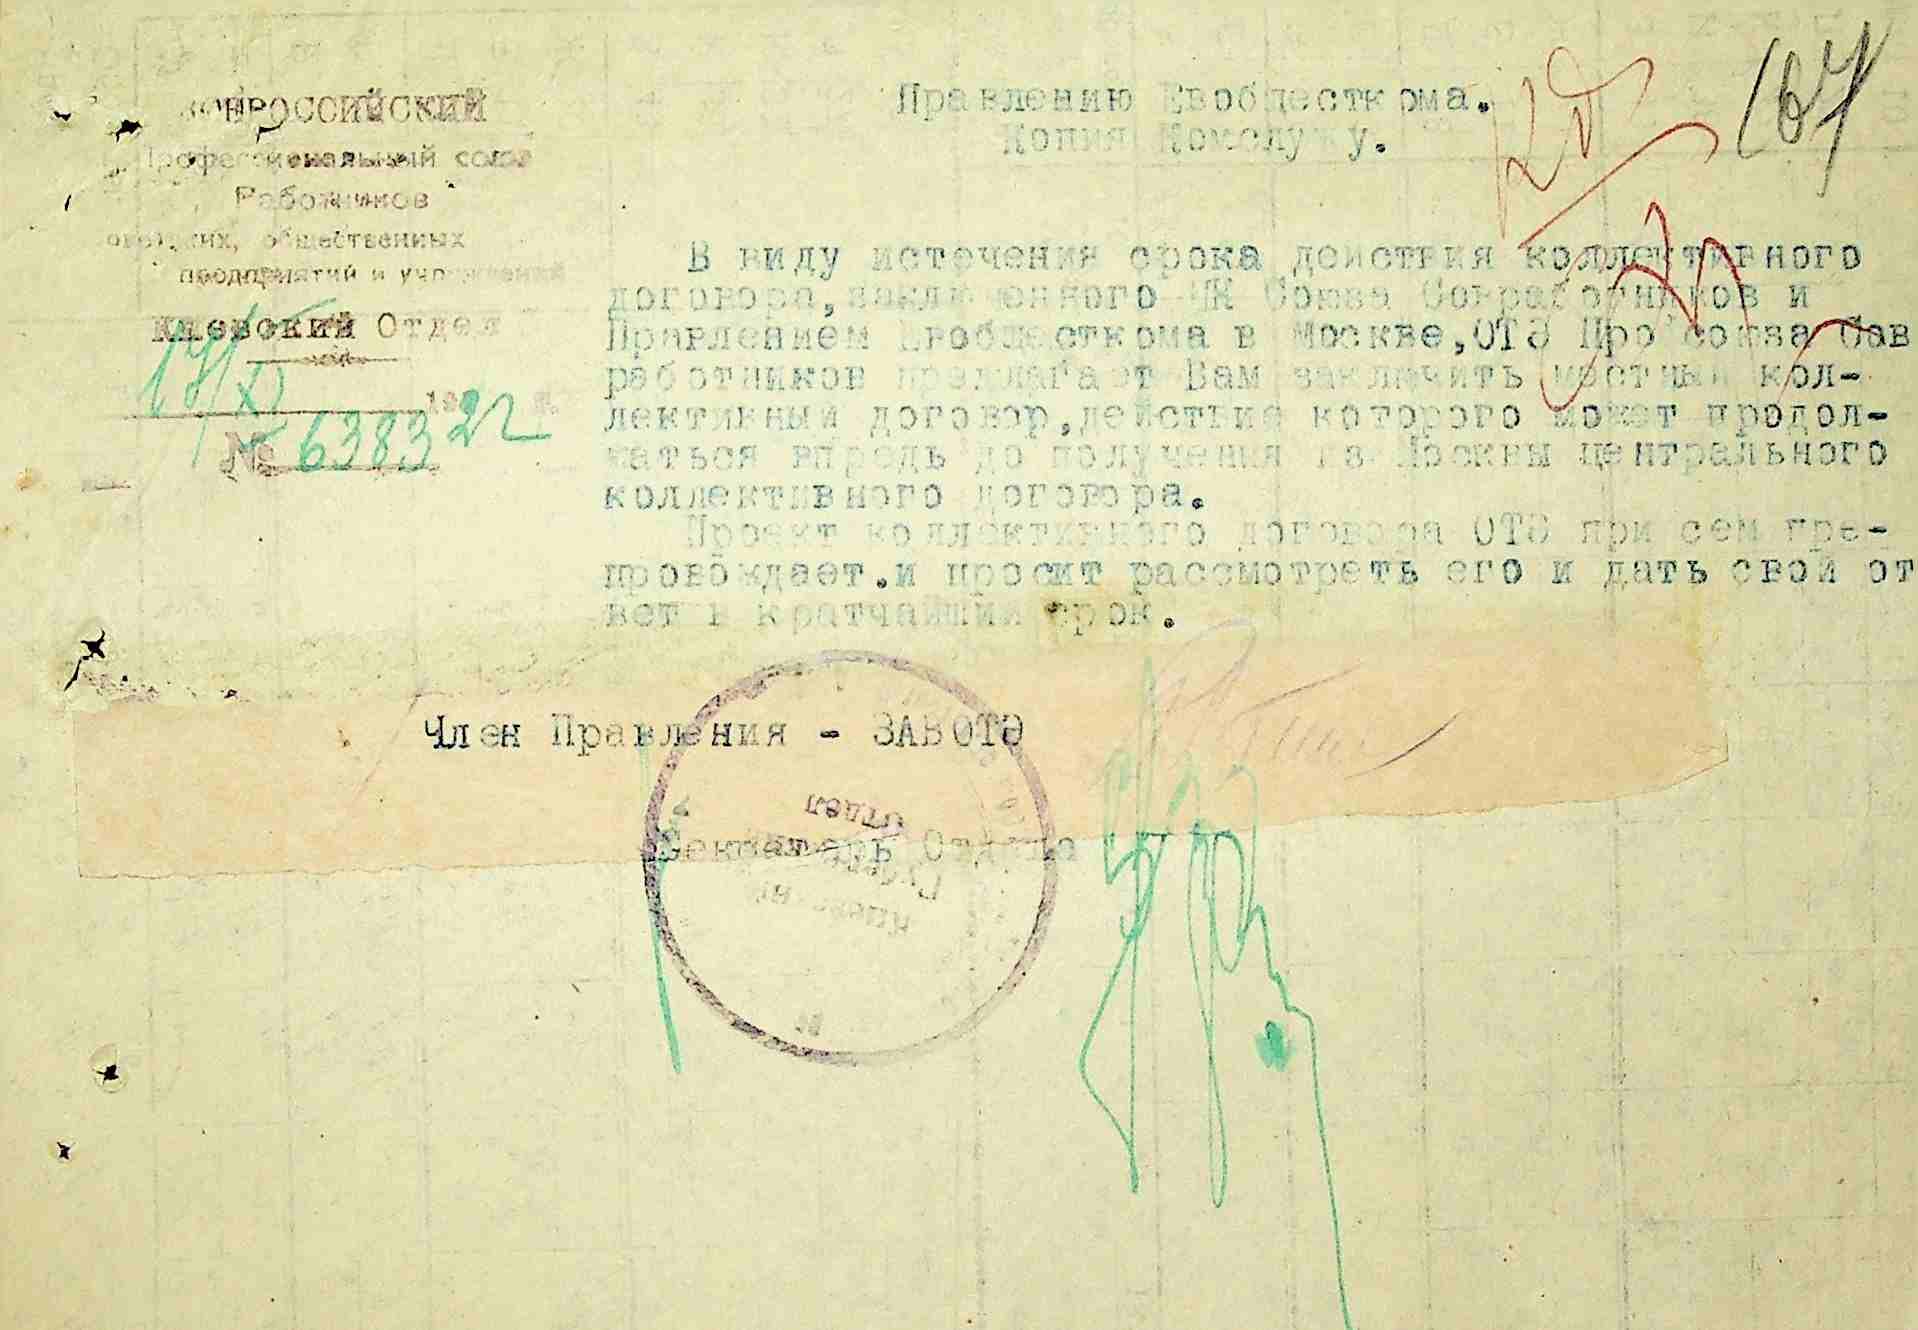 ВСЕРОССИЙСКИЙ
Профессиональный союз
Работников
советских, общественных
предприятий и учреждений
Киевский Отдел
17/XI 1922 г.
№ 6383
107
Правлению Евобщесткома.
Копия Комслужу.
В виду истечения срока действия коллективного
договора, заключенного ЦК Союза Совработников и
Правлением Евобщесткома в Москве, ОТЭ Профсоюза Сов
работников предлагает Вам заключить местный кол-
лективный договор, действие которого может продол-
жаться впредь до получения из Москвы центрального
коллективного договора.
Проект коллективного договора ОТЭ при сем пре-
провождает.и просит рассмотреть его и дать свой от
вет в кратчайший срок.
Член Правления - ЗАВОТЭ
Секретарь Отдела
Киевский
Губерн
отдел